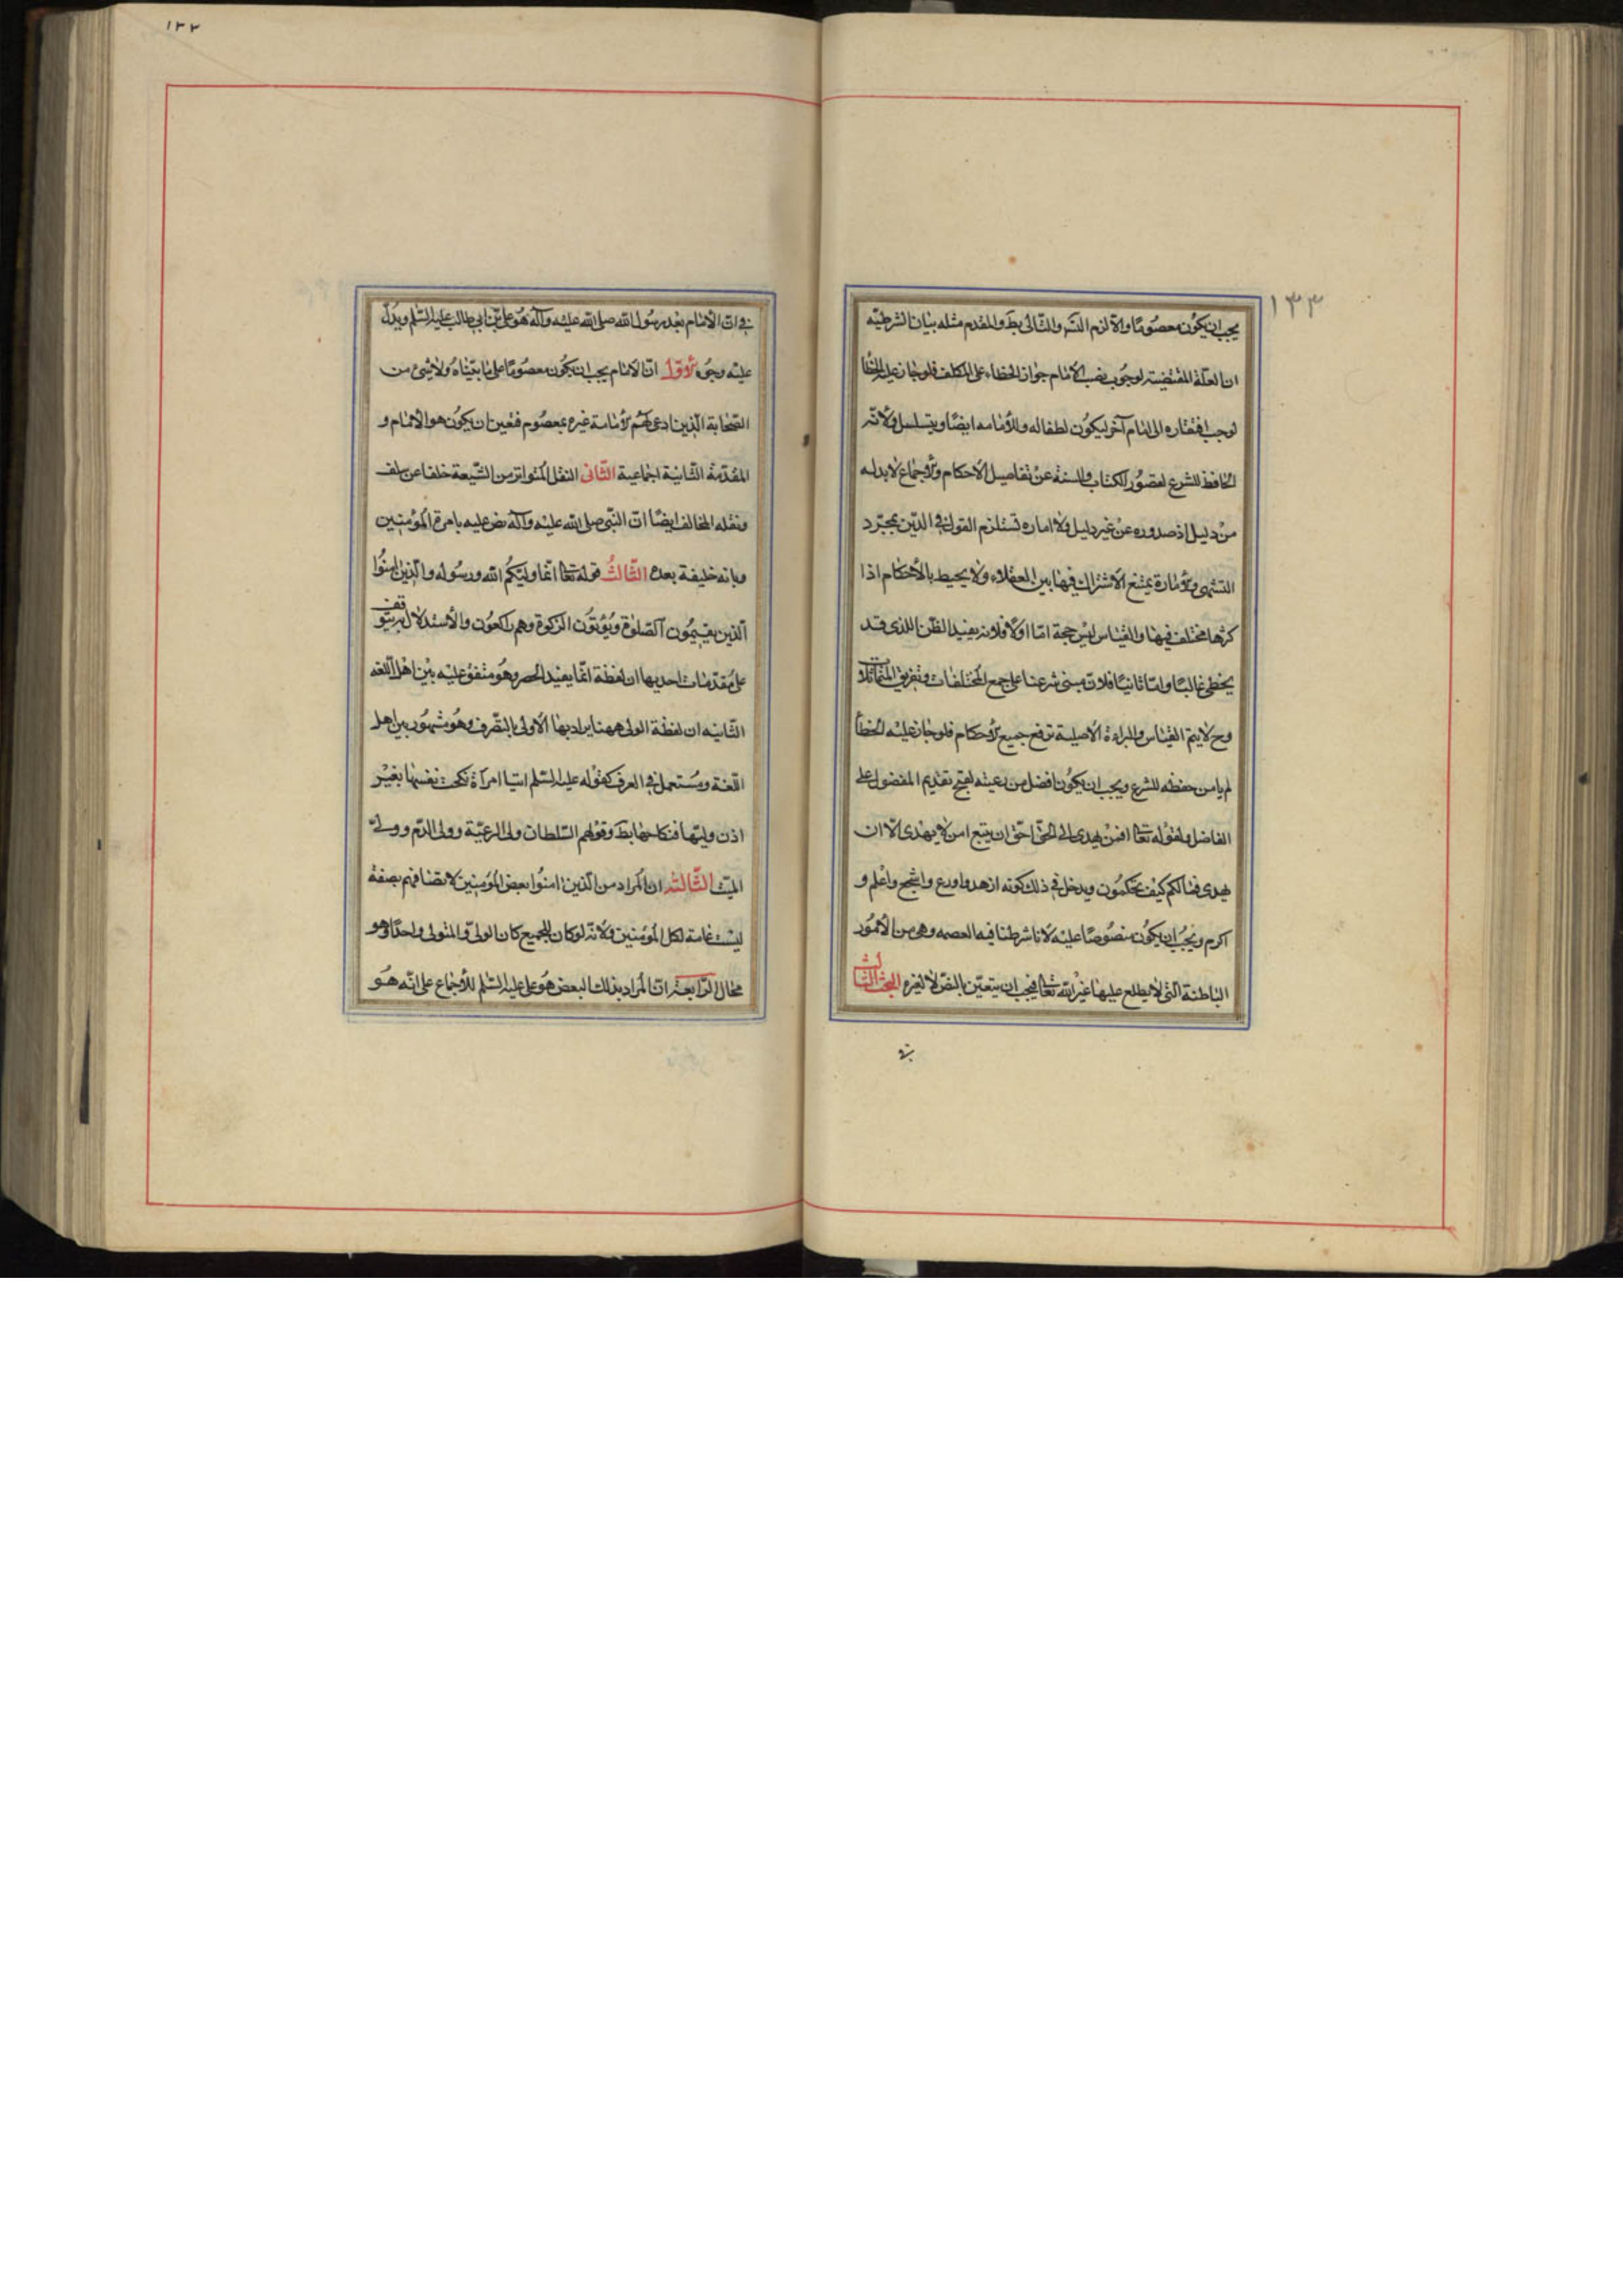 ١٣٣
يجب ان يكون معصومًا والا لزم التسر والتالى بط والمقدم مثله بيان الشرطيّه
ان العلّة المقتضيته لوجوب نصب الأمام جواز الخطاء على المكلف فلو جاز عليه الخطأ
لوجب افتقاره الى امام آخر ليكون لطفا له وللأمامه ايضًا ويتسلسل ولأنّه
الحافظ للشرع لقصور الكتاب والسنة عن تفاصيل الأحكام والأجماع لا بد له
من دليل اذ صدوره عن غير دليل ولا اماره تستلزم القول فى الدّين بمجرّد
التشهى والأمارة يمتنع الاشتراك فيها بين العقلاء ولا يحيط بالأحكام اذا
كثرها مختلف فيها والقياس ليس حجة امّا اولا فلانه يفيد الظن الذى قد
يخطى غالبًا وامّا ثانيًا فلان مبنى شرعنا على جمع المختلفات وتفريق المتماثلات
وح لا يتم القياس والبراءة الأصلية ترفع جميع الأحكام فلو جاز عليه الخطأ
لم يامن حفظه للشرع ويجب ان يكون افضل من رعيته لقبح تقديم المفضول على
الفاضل ولقوله تعا افمن يهدى الى الحقّ احقّ ان يتبع امن لا يهدى الّا ان
يهدى فما لكم كيف تحكمون ويدخل فى ذلك كونه ازهد واورع واشجع واعلم و
اكرم ويجب ان يكون منصوصًا عليه لانا شرطنا فيه العصمه وهى من الأمور
الباطنة التى لا يطلع عليها غير الله تعا فيجب ان يتعيّن بالنصّ لا لغيره البحث الثالث
فى
١٣٣
فى ان الأمام بعد رسول الله صلى الله عليه وآله هو على بن ابي طالب عليه السّلم ويدلّ
عليه وجوه الأوّل انّ الأمام يجب ان يكون معصومًا على ما بيّناه ولا شئ من
الصّحابة الّذين ادعى لهم الأمامة غيره بمعصوم فتعين ان يكون هو الأمام و
المقدّمة الثّانية اجماعية الثّانى النقل المتواتر من الشّيعة خلفا عن سلف
ونقله المخالف ايضًا انّ النّبى صلى الله عليه وآله نصّ عليه بامرة المؤمنين
وبانه خليفة بعده الثّالث قوله تعا انّما وليّكم الله ورسوله والّذين امنوا
الّذين يقيمون الصّلوة ويؤتون الزّكوة وهم راكعون والأستدلال به يتوقف
على مقدّمات احديها ان لفظة انّما يفيد الحصر وهو متفق عليه بين اهل اللّغه
الثّانيه ان لفظة الولى ههنا يراد بها الأولى بالتّصرف وهو مشهور بين اهل
اللّغة ومستعمل فى العرف كقوله عليه السّلم ايّما امرأة نكحت نفسها بغير
اذن وليّها فنكاحها بط وقولهم السّلطان ولى الرعيّة وولى الدّم وولىّ
الميّت الثّالثة ان المراد من الّذين امنوا بعض المؤمنين لاتصافهم بصفة
ليست عامة لكل المؤمنين ولأنّه لو كان للجميع كان الولىّ والمتولى واحدًا وهو
محال الرّابعة انّ المراد بذلك البعض هو على عليه السّلم للأجماع على انّه هو